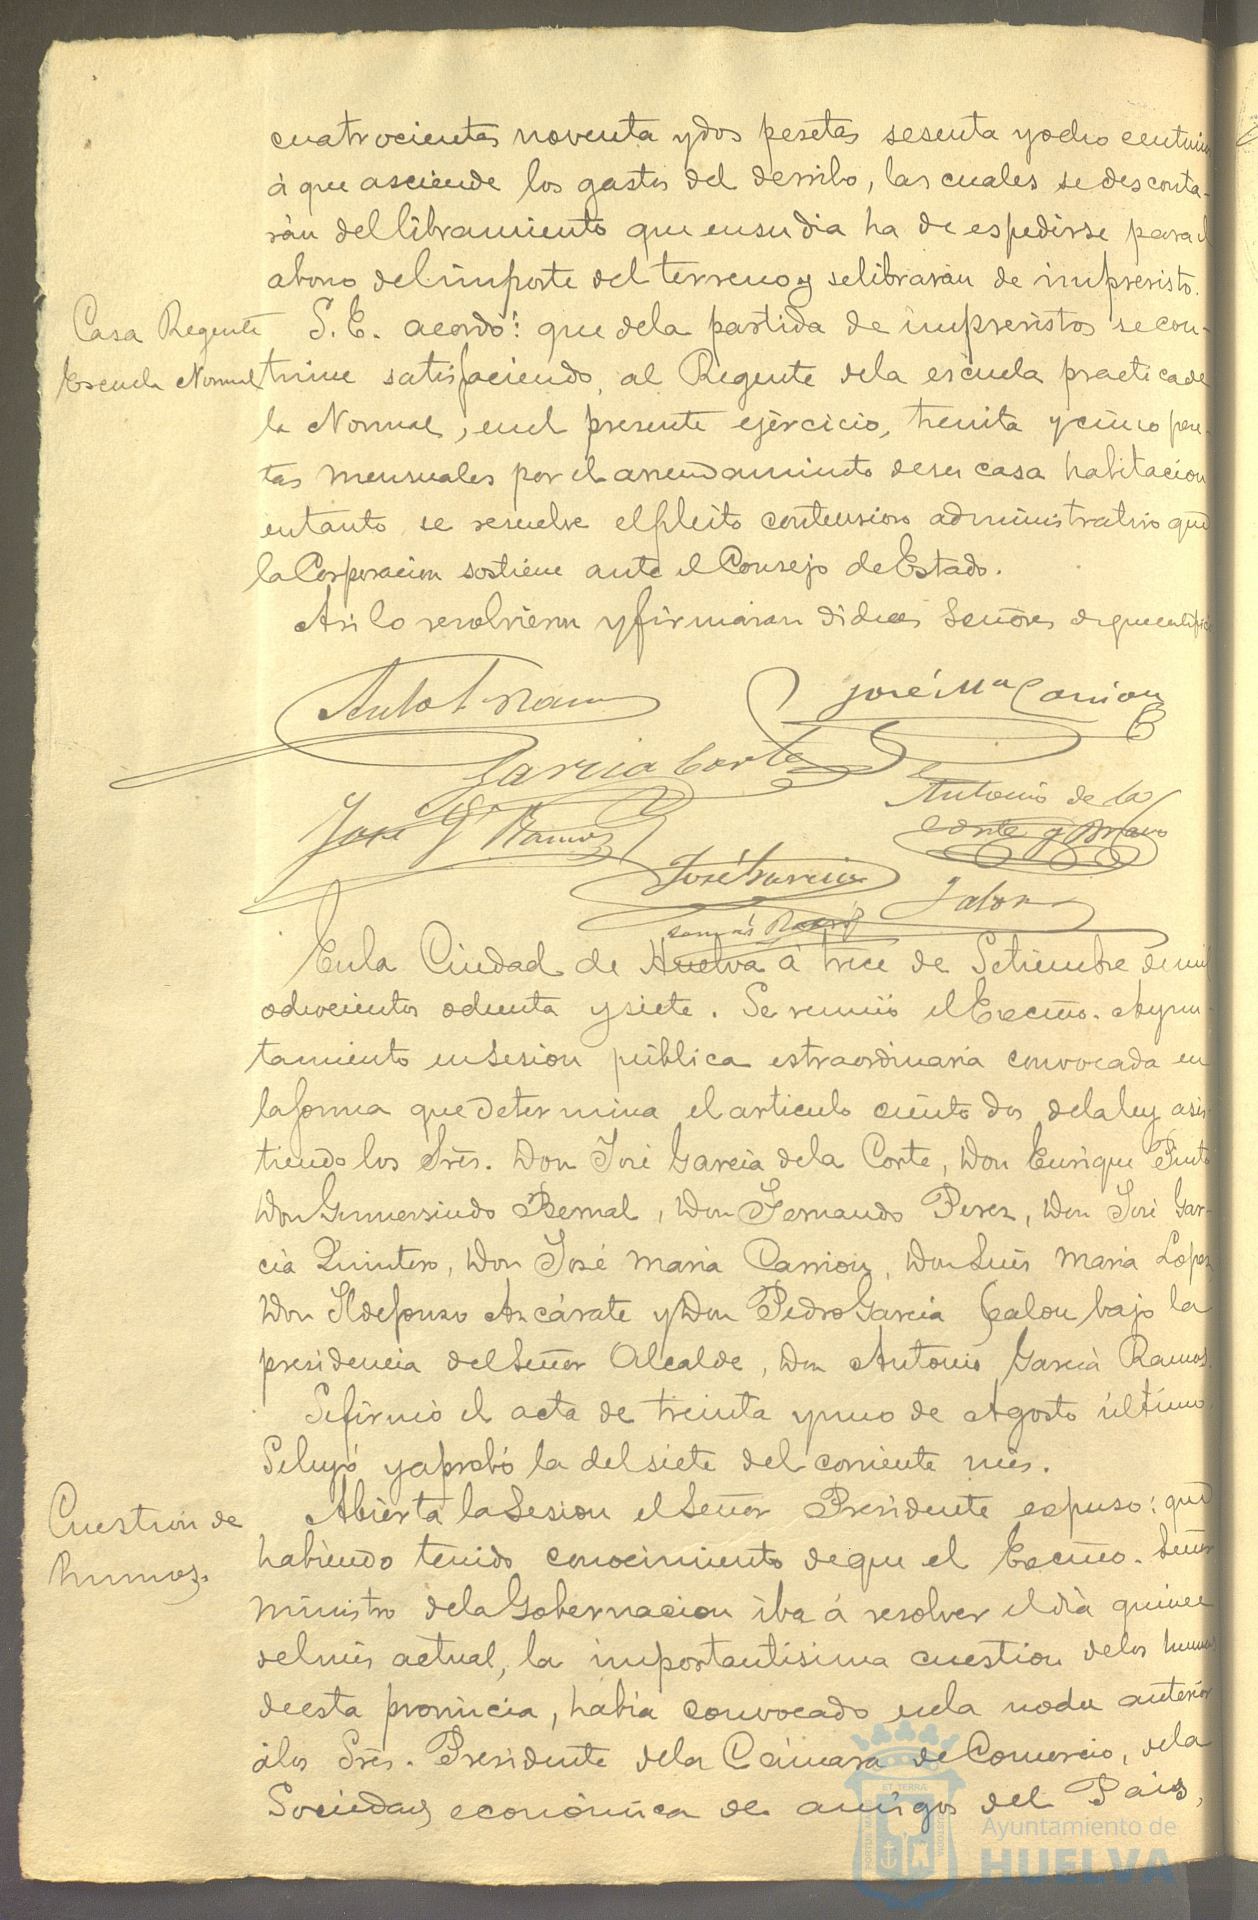 cuatrocientas noventa y dos pesetas sesenta y ocho centimos
á que asciende los gastos del derribo, las cuales se desconta-
rán del libramiento que en su dia ha de espedirse para el
abono del importe del terreno y se librarán de imprevistos.
Casa Regente
Escuela Normal
S. E. acordó: que de la partida de imprevistos se con-
tinue satisfaciendo, al Regente de la escuela practica de
la Normal, en el presente ejercicio, treinta y cinco pese-
tas mensuales por el arrendamiento de su casa habitacion
entanto se resuelve el pleito contencioso administrativo que
la Corporacion sostiene ante el Consejo de Estado.
Asi lo resolvieron y firmaran dichos Señores de que certifico
Antº G Ramos
José Mª Carrion
Garcia Corte
José G Ramos
Antonio de la
Corte y Bravo
José Garcia
Jalon
En la Ciudad de Huelva á trece de Setiembre de mil
ochocientos ochenta y siete. Se reunió el Excmo. Ayun-
tamiento en sesion pública estraordinaria convocada en
la forma que determina el articulo ciento dos de la ley asis-
tiendo los Sres. Don José Garcia de la Corte, Don Enrique Pinto
Don Gumersindo Bernal, Don Fernando Perez, Don José Gar-
cia Quintero, Don José Maria Carrion, Don Luis Maria Lopez
Don Ildefonso Azcárate y Don Pedro Garcia Jalon bajo la
presidencia del Señor Alcalde, Don Antonio Garcia Ramos.
Se firmó el acta de treinta y uno de Agosto último.
Se leyó y aprobó la del siete del corriente mes.
Cuestion de
humos.
Abierta la sesion el Señor Presidente espuso: que
habiendo tenido conocimiento de que el Excmo. Señor
Ministro de la Gobernacion iba á resolver el dia quince
del mes actual, la importantisima cuestion de los humos
de esta provincia, habia convocado en la noche anterior
á los Sres. Presidente de la Cámara de Comercio, de la
Sociedad económica de amigos del Pais,
Ayuntamiento de
HUELVA